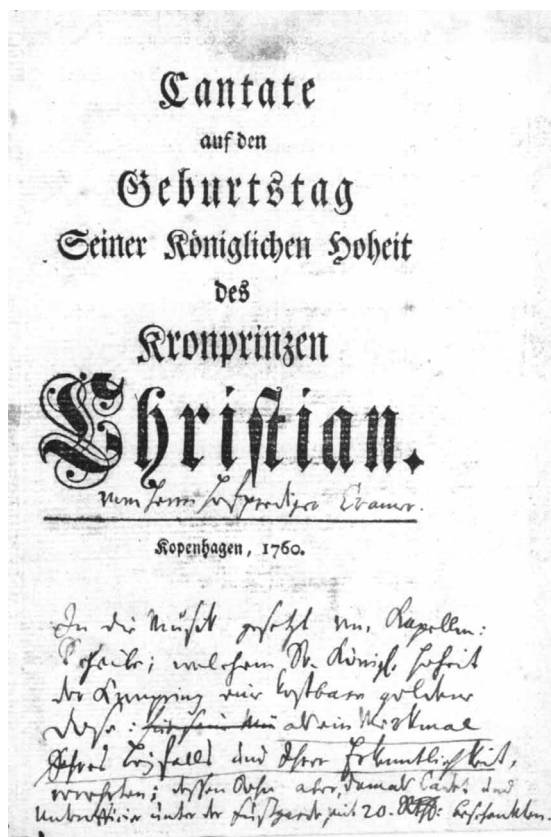 Cantate
auf den
Geburtstag
Seiner Königlichen Hoheit
des
Kronprinzen
Christian.
vom Herrn Hofprediger Cramer.
Kopenhagen, 1760.
In die Musik gesetzt von Kapellm:
Scheibe; welchem Sr. Königl. Hoheit
der Kronprinz eine kostbare goldene
Dose: als ein Merkmal
Ihres Beyfalls und Ihrer Erkenntlichkeit,
verehrten; dessen Sohn aber, damals Cadet und
Unterofficier unter der Fußgarde mit 20. beschenkten.